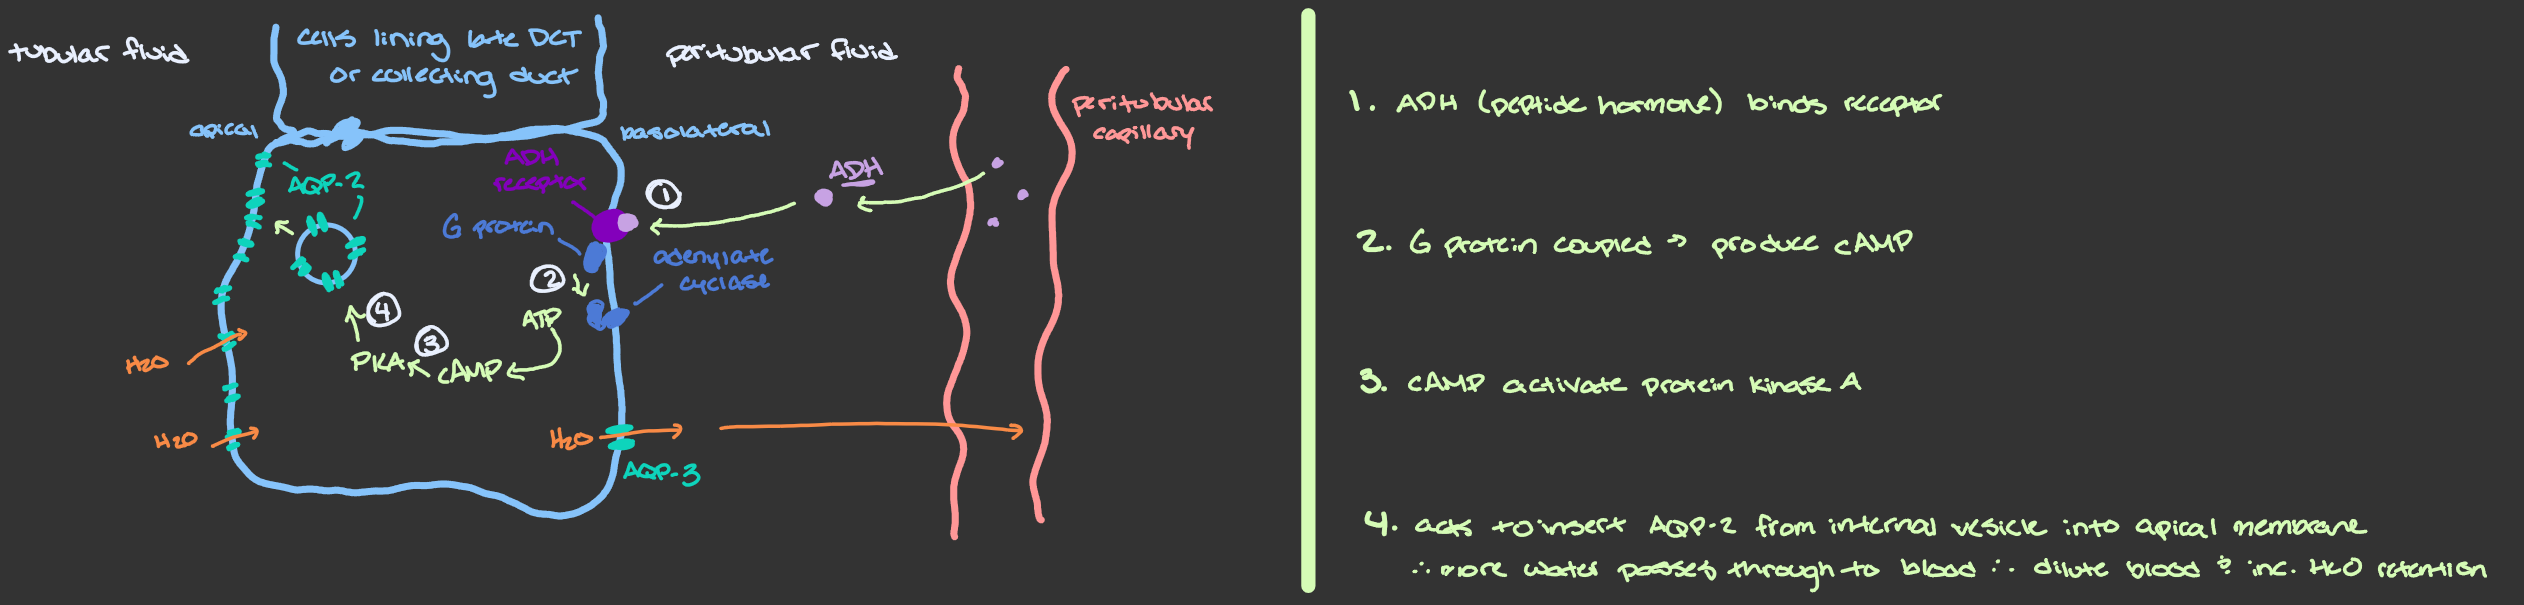 tubular fluid
cells lining late DCT
or collecting duct
peritubular fluid
apical
basolateral
peritubular
capillary
ADH
receptor
AQP-2
1
ADH
G protein
adenylate
cyclase
2
ATP
4
3
PKA
cAMP
H2O
H2O
H2O
AQP-3
1. ADH (peptide hormone) binds receptor
2. G protein coupled → produce cAMP
3. cAMP activate protein kinase A
4. acts to insert AQP-2 from internal vesicle into apical membrane
∴ more water passes through to blood ∴ dilute blood & inc. H2O retention